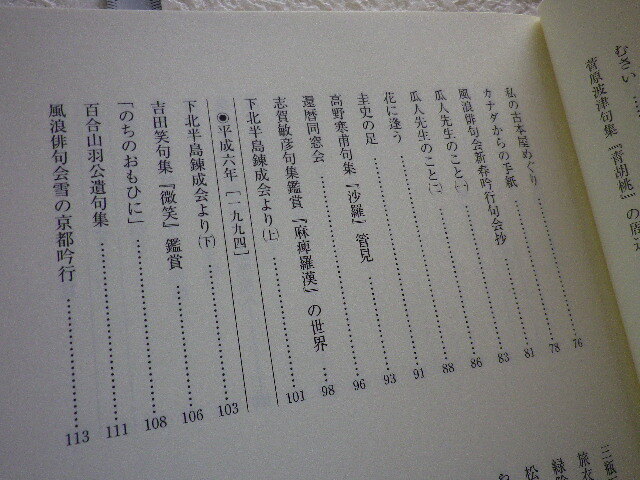 むさい……
菅原波津句集『青胡桃』の周辺
私の古本屋めぐり……76
カナダからの手紙……78
風浪俳句会新春吟行句会抄……81
瓜人先生のこと(一)……83
瓜人先生のこと(二)……86
花に逢う……88
圭史の足……91
高野寒甫句集『沙羅』管見……93
還暦同窓会……96
志賀敏彦句集鑑賞『麻痺羅漢』の世界……98
下北半島錬成会より(上)……101
◉平成六年［一九九四］
下北半島錬成会より(下)……103
吉田笑句集『微笑』鑑賞……106
「のちのおもひに」……108
百合山羽公遺句集……111
風浪俳句会雪の京都吟行……113
三瓶
旅衣
緑陰
松